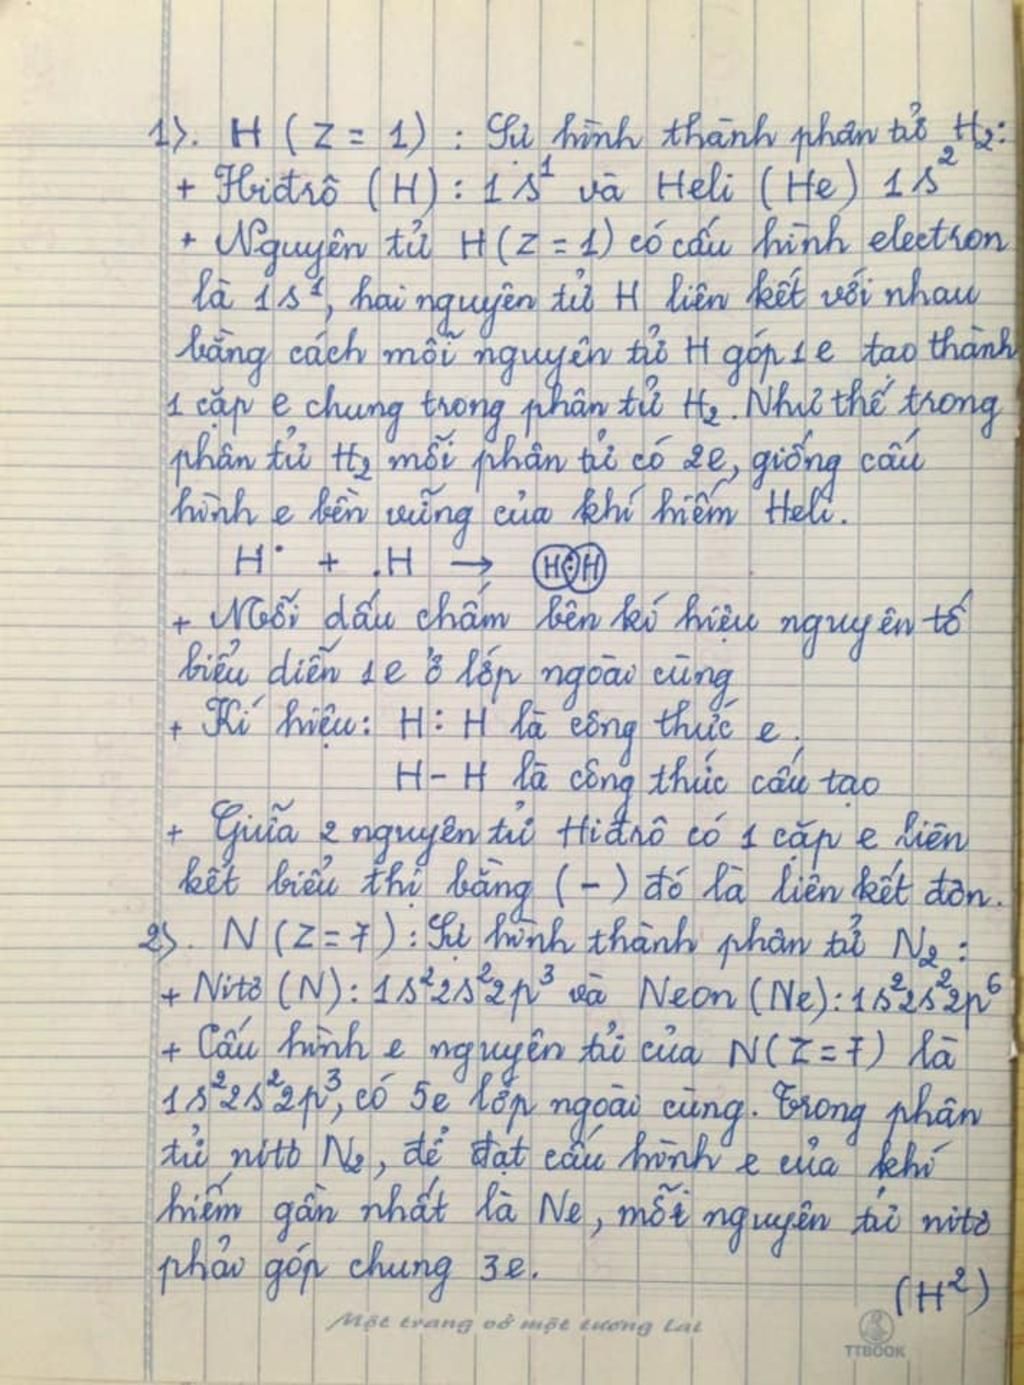 1). H (Z = 1) : Sự hình thành phân tử H₂:
+ Hiđrô (H) : 1s¹ và Heli (He) 1s²
+ Nguyên tử H (Z = 1) có cấu hình electron
là 1s¹, hai nguyên tử H liên kết với nhau
bằng cách mỗi nguyên tử H góp 1e tạo thành
1 cặp e chung trong phân tử H₂. Như thế trong
phân tử H₂ mỗi phân tử có 2e, giống cấu
hình e bền vững của khí hiếm Heli.
H· + .H → H:H
+ Mỗi dấu chấm bên kí hiệu nguyên tố
biểu diễn 1e ở lớp ngoài cùng
+ Kí hiệu: H : H là công thức e.
H - H là công thức cấu tạo
+ Giữa 2 nguyên tử Hiđrô có 1 cặp e liên
kết biểu thị bằng (-) đó là liên kết đơn.
2). N (Z = 7) : Sự hình thành phân tử N₂ :
+ Nitơ (N) : 1s²2s²2p³ và Neon (Ne) : 1s²2s²2p⁶
+ Cấu hình e nguyên tử của N (Z = 7) là
1s²2s²2p³, có 5e lớp ngoài cùng. Trong phân
tử nitơ N₂, để đạt cấu hình e của khí
hiếm gần nhất là Ne, mỗi nguyên tử nitơ
phải góp chung 3e.
(H²)
Một trang vở một tương lai
TTBOOK